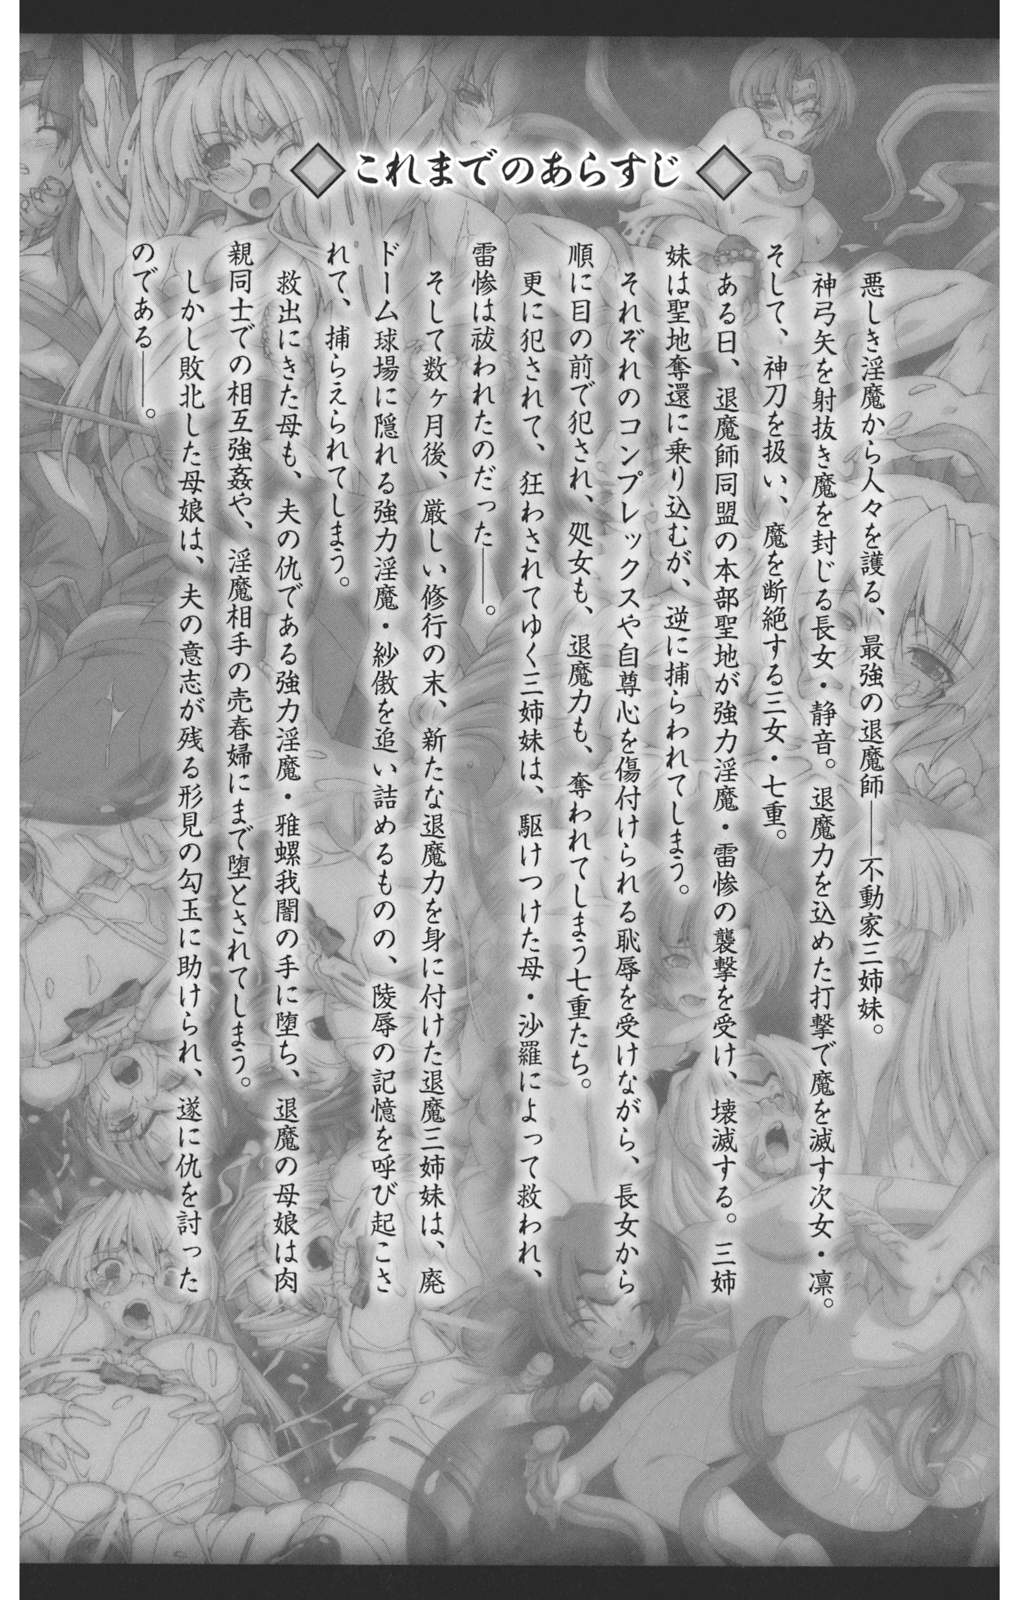 これまでのあらすじ
悪しき淫魔から人々を護る、最強の退魔師――不動家三姉妹。
神弓矢を射抜き魔を封じる長女・静音。退魔力を込めた打撃で魔を滅す次女・凛。
そして、神刀を扱い、魔を断絶する三女・七重。
ある日、退魔師同盟の本部聖地が強力淫魔・雷惨の襲撃を受け、壊滅する。三姉
妹は聖地奪還に乗り込むが、逆に捕らわれてしまう。
それぞれのコンプレックスや自尊心を傷付けられる恥辱を受けながら、長女から
順に目の前で犯され、処女も、退魔力も、奪われてしまう七重たち。
更に犯されて、狂わされてゆく三姉妹は、駆けつけた母・沙羅によって救われ、
雷惨は祓われたのだった――。
そして数ヶ月後、厳しい修行の末、新たな退魔力を身に付けた退魔三姉妹は、廃
ドーム球場に隠れる強力淫魔・紗傲を追い詰めるものの、陵辱の記憶を呼び起こさ
れて、捕らえられてしまう。
救出にきた母も、夫の仇である強力淫魔・雅螺我闇の手に堕ち、退魔の母娘は肉
親同士での相互強姦や、淫魔相手の売春婦にまで堕とされてしまう。
しかし敗北した母娘は、夫の意志が残る形見の勾玉に助けられ、遂に仇を討った
のである――。